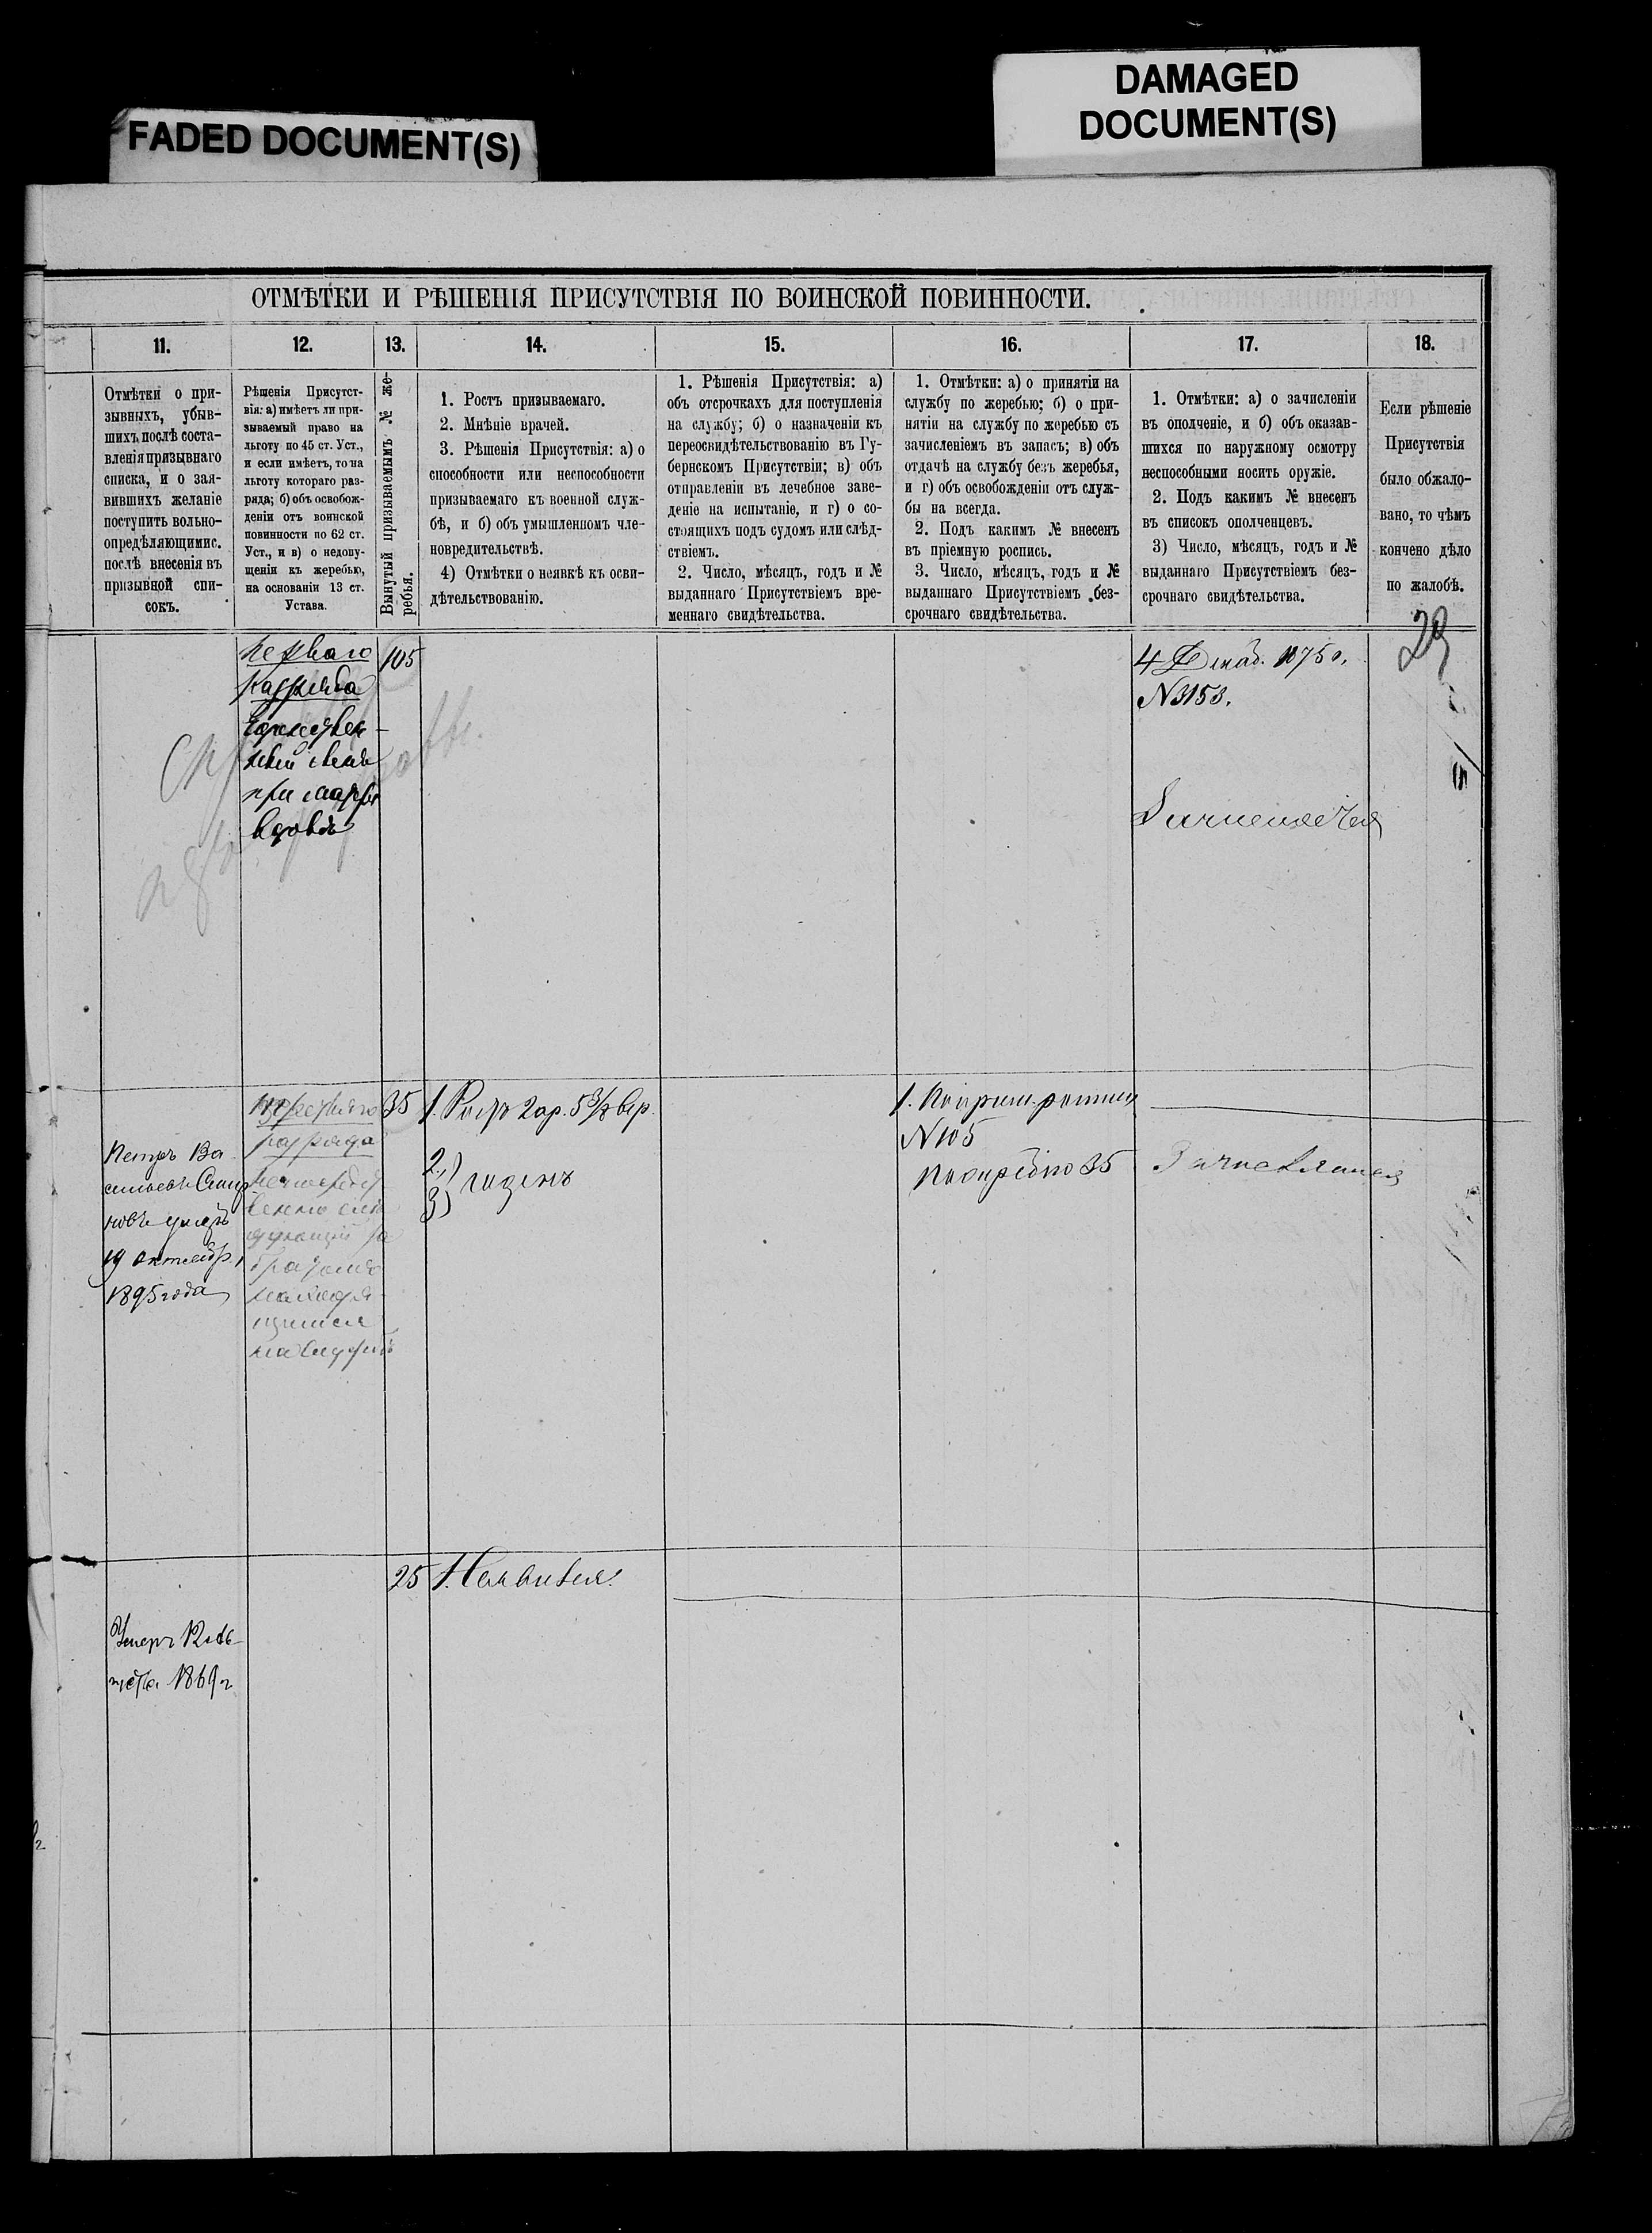 FADED DOCUMENT(S)
DAMAGED
DOCUMENT(S)
ОТМѢТКИ И РѢШЕНІЯ ПРИСУТСТВІЯ ПО ВОИНСКОЙ ПОВИННОСТИ.
11.
12.
13.
14.
15.
16.
17.
18.
Отмѣтки о при-
зывныхъ, убыв-
шихъ послѣ соста-
вленія призывнаго
списка, и о зая-
вившихъ желаніе
поступить вольно-
опредѣляющимис.
послѣ внесенія въ
призывной спи-
сокъ.
Рѣшенія Присутст-
вія: а) имѣетъ ли при-
зываемый право на
льготу по 45 ст. Уст.,
и если имѣетъ, то на
льготу котораго раз-
ряда; б) объ освобож-
деніи отъ воинской
повинности по 62 ст.
Уст., и в) о недопу-
щеніи къ жеребью,
на основаніи 13 ст.
Устава.
Вынутый призываемымъ № же-
ребья.
1. Ростъ призываемаго.
2. Мнѣніе врачей.
3. Рѣшенія Присутствія: а) о
способности или неспособности
призываемаго къ военной служ-
бѣ, и б) объ умышленномъ чле-
новредительствѣ.
4) Отмѣтки о неявкѣ къ осви-
дѣтельствованію.
1. Рѣшенія Присутствія: а)
объ отсрочкахъ для поступленія
на службу; б) о назначеніи къ
переосвидѣтельствованію въ Гу-
бернскомъ Присутствіи; в) объ
отправленіи въ лечебное заве-
деніе на испытаніе, и г) о со-
стоящихъ подъ судомъ или слѣд-
ствіемъ.
2. Число, мѣсяцъ, годъ и №
выданнаго Присутствіемъ вре-
меннаго свидѣтельства.
1. Отмѣтки: а) о принятіи на
службу по жеребью; б) о при-
нятіи на службу по жеребью съ
зачисленіемъ въ запасъ; в) объ
отдачѣ на службу безъ жеребья,
и г) объ освобожденіи отъ служ-
бы на всегда.
2. Подъ какимъ № внесенъ
въ пріемную роспись.
3. Число, мѣсяцъ, годъ и №
выданнаго Присутствіемъ без-
срочнаго свидѣтельства.
1. Отмѣтки: а) о зачисленіи
въ ополченіе, и б) объ оказав-
шихся по наружному осмотру
неспособными носить оружіе.
2. Подъ какимъ № внесенъ
въ список ополченцевъ.
3) Число, мѣсяцъ, годъ и №
выданнаго Присутствіемъ без-
срочнаго свидѣтельства.
Если рѣшеніе
Присутствія
было обжало-
вано, то чѣмъ
кончено дѣло
по жалобѣ.
29
перваго
разряда
единствен-
ный сынъ
при матери
вдовѣ
105
4 Декаб. 1875 г.
№ 3153.
Петръ Ва
сильевъ
умеръ
19 октябр.
1895 года
разряда
непосредст
венно слѣ
дующій за
братомъ
находя
щимся
на службѣ
35
1. Ростъ 2 ар. 5 3/8 вер.
2)
3) годенъ
1.
№ 105
35
25
1. Неявился.
Умеръ
1869 г